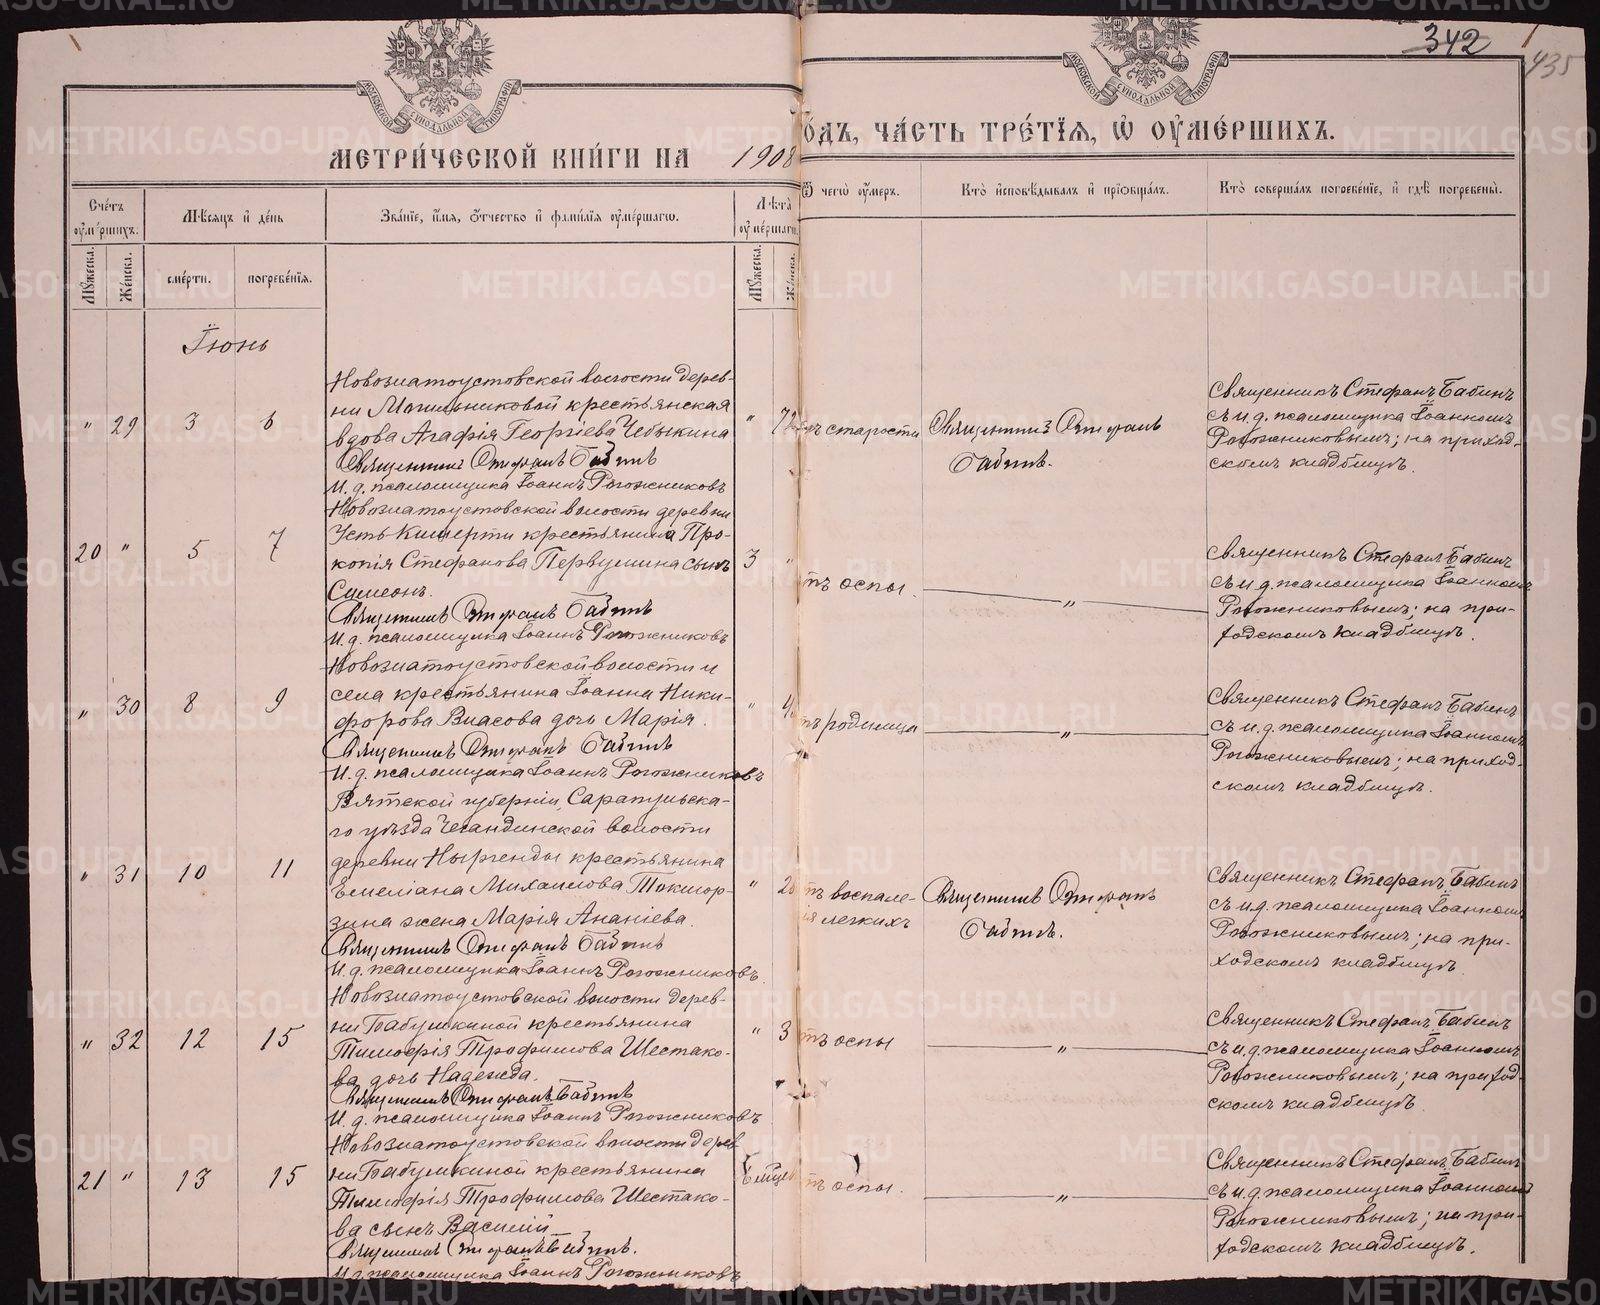 342
435
МОСКОВСКОЙ СУНОДАЛЬНОЙ ТИПОГРАФІИ
МОСКОВСКОЙ СУНОДАЛЬНОЙ ТИПОГРАФІИ
МЕТРИ́ЧЕСКОЙ КНИ́ГИ НА 1908
ГО́ДЪ, ЧА́СТЬ ТРЕ́ТІѦ, Ѡ҆ ОУ҆МЕ́РШИХЪ.
Сче́тъ оу҆ме́ршихъ.
Мѣ́сѧцъ и҆ де́нь
Зва́нїе, и҆́мѧ, ѻ҆́тчество и҆ фами́лїѧ оу҆ме́ршагѡ.
Лѣ́та оу҆ме́ршагѡ
Ѿ чегѡ̀ оу҆́меръ.
Кто̀ и҆сповѣ́дывалъ и҆ прїѡбща́лъ.
Кто̀ соверша́лъ погребе́нїе, и҆ гдѣ̀ погребены̀.
Мꙋ́жеска.
Же́нска.
сме́рти.
погребе́нїѧ.
Мꙋ́жеска.
Же́нска.
Іюнь
" 29 3 6
Новозлатоустовской волости дерев-
ни Могильниковой крестьянская
вдова Агафія Георгіева Чебыкина
Священникъ Стефанъ Бабинъ
И. д. псаломщика Іоаннъ Рогожниковъ
" 72
отъ старости
Священникъ Стефанъ
Бабинъ.
Священникъ Стефанъ Бабинъ
съ и. д. псаломщика Іоанномъ
Рогожниковымъ; на приход-
скомъ кладбищѣ.
20 " 5 7
Новозлатоустовской волости деревни
Усть-Кишерти крестьянина Про-
копія Стефанова Первушина сынъ
Симеонъ.
Священникъ Стефанъ Бабинъ
И. д. псаломщика Іоаннъ Рогожниковъ
3 "
тъ оспы.
"
Священникъ Стефанъ Бабинъ
съ и. д. псаломщика Іоанномъ
Рогожниковымъ; на при-
ходскомъ кладбищѣ.
" 30 8 9
Новозлатоустовской волости и
села крестьянина Іоанна Ники-
форова Власова дочь Марія.
Священникъ Стефанъ Бабинъ
И. д. псаломщика Іоаннъ Рогожниковъ
"
тъ родимца
"
Священникъ Стефанъ Бабинъ
съ и. д. псаломщика Іоанномъ
Рогожниковымъ; на приход-
скомъ кладбищѣ.
" 31 10 11
Вятской губерніи, Сарапульска-
го уѣзда Чегандинской волости
деревни Ныргенды крестьянина
Емеліана Михаилова
жена Марія Ананіева.
Священникъ Стефанъ Бабинъ
И. д. псаломщика Іоаннъ Рогожниковъ
"
тъ воспале-
ія легкихъ
Священникъ Стефанъ
Бабинъ.
Священникъ Стефанъ Бабинъ
съ и. д. псаломщика Іоанномъ
Рогожниковымъ; на при-
ходскомъ кладбищѣ.
" 32 12 15
Новозлатоустовской волости дерев-
ни Бабушкиной крестьянина
Тимофія Трофимова Шестако-
ва дочь Надежда.
Священникъ Стефанъ Бабинъ
И. д. псаломщика Іоаннъ Рогожниковъ
" 3
тъ оспы
"
Священникъ Стефанъ Бабинъ
съ и. д. псаломщика Іоанномъ
Рогожниковымъ; на приход-
скомъ кладбищѣ.
21 " 13 15
Новозлатоустовской волости дерев
ни Бабушкиной крестьянина
Тимофія Трофимова Шестако-
ва сынъ Василій
Священникъ Стефанъ Бабинъ.
И. д. псаломщика Іоаннъ Рогожниковъ
тъ оспы.
"
Священникъ Стефанъ Бабинъ
съ и. д. псаломщика Іоанномъ
Рогожниковымъ; на при-
ходскомъ кладбищѣ.
METRIKI.GASO-URAL.RU